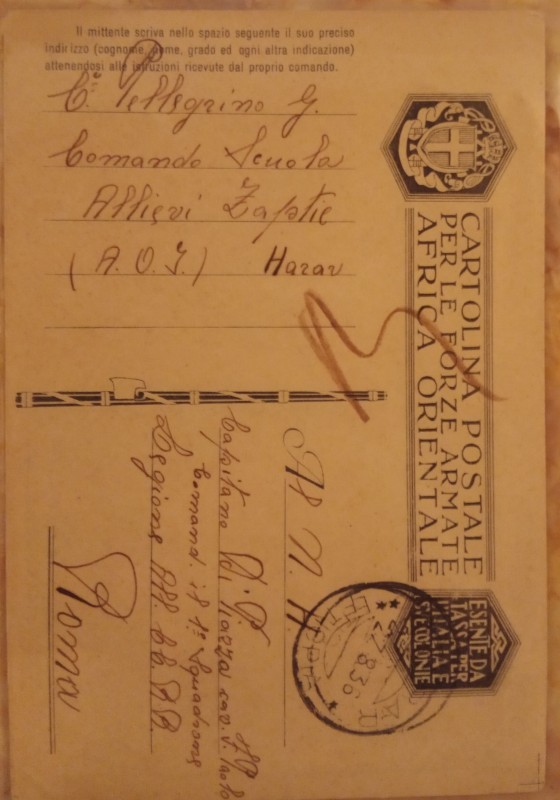 Il mittente scriva nello spazio seguente il suo preciso
indirizzo (cognome, nome, grado ed ogni altra indicazione)
attenendosi alle istruzioni ricevute dal proprio comando.
Cᵉ Pellegrino G.
Comando Scuola
Allievi Zaptie
(A. O. I.) Harar
CARTOLINA POSTALE
PER LE FORZE ARMATE
AFRICA ORIENTALE
ESENTE DA
TASSA PER
L'ITALIA E
COLONIE
Al N. H.
Capitano Di Piazza cav.
Comand. il 1° Squadrone
Legione All. CC. RR.
Roma